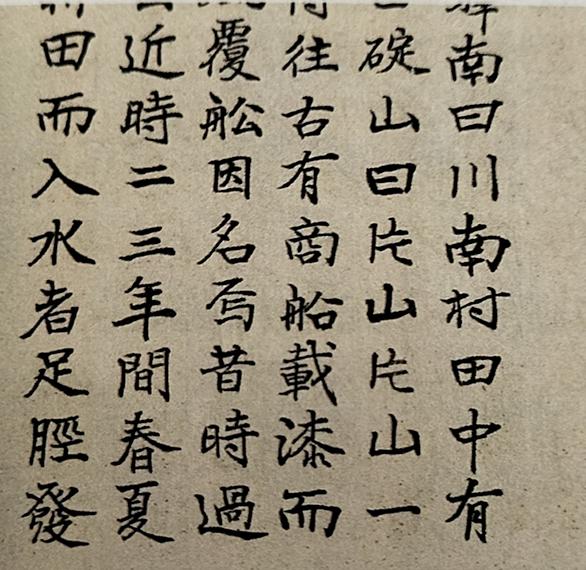 南曰川南村田中有
碇山曰片山片山一
往古有商船載漆而
覆舩因名焉昔時過
近時二三年間春夏
田而入水者足脛發